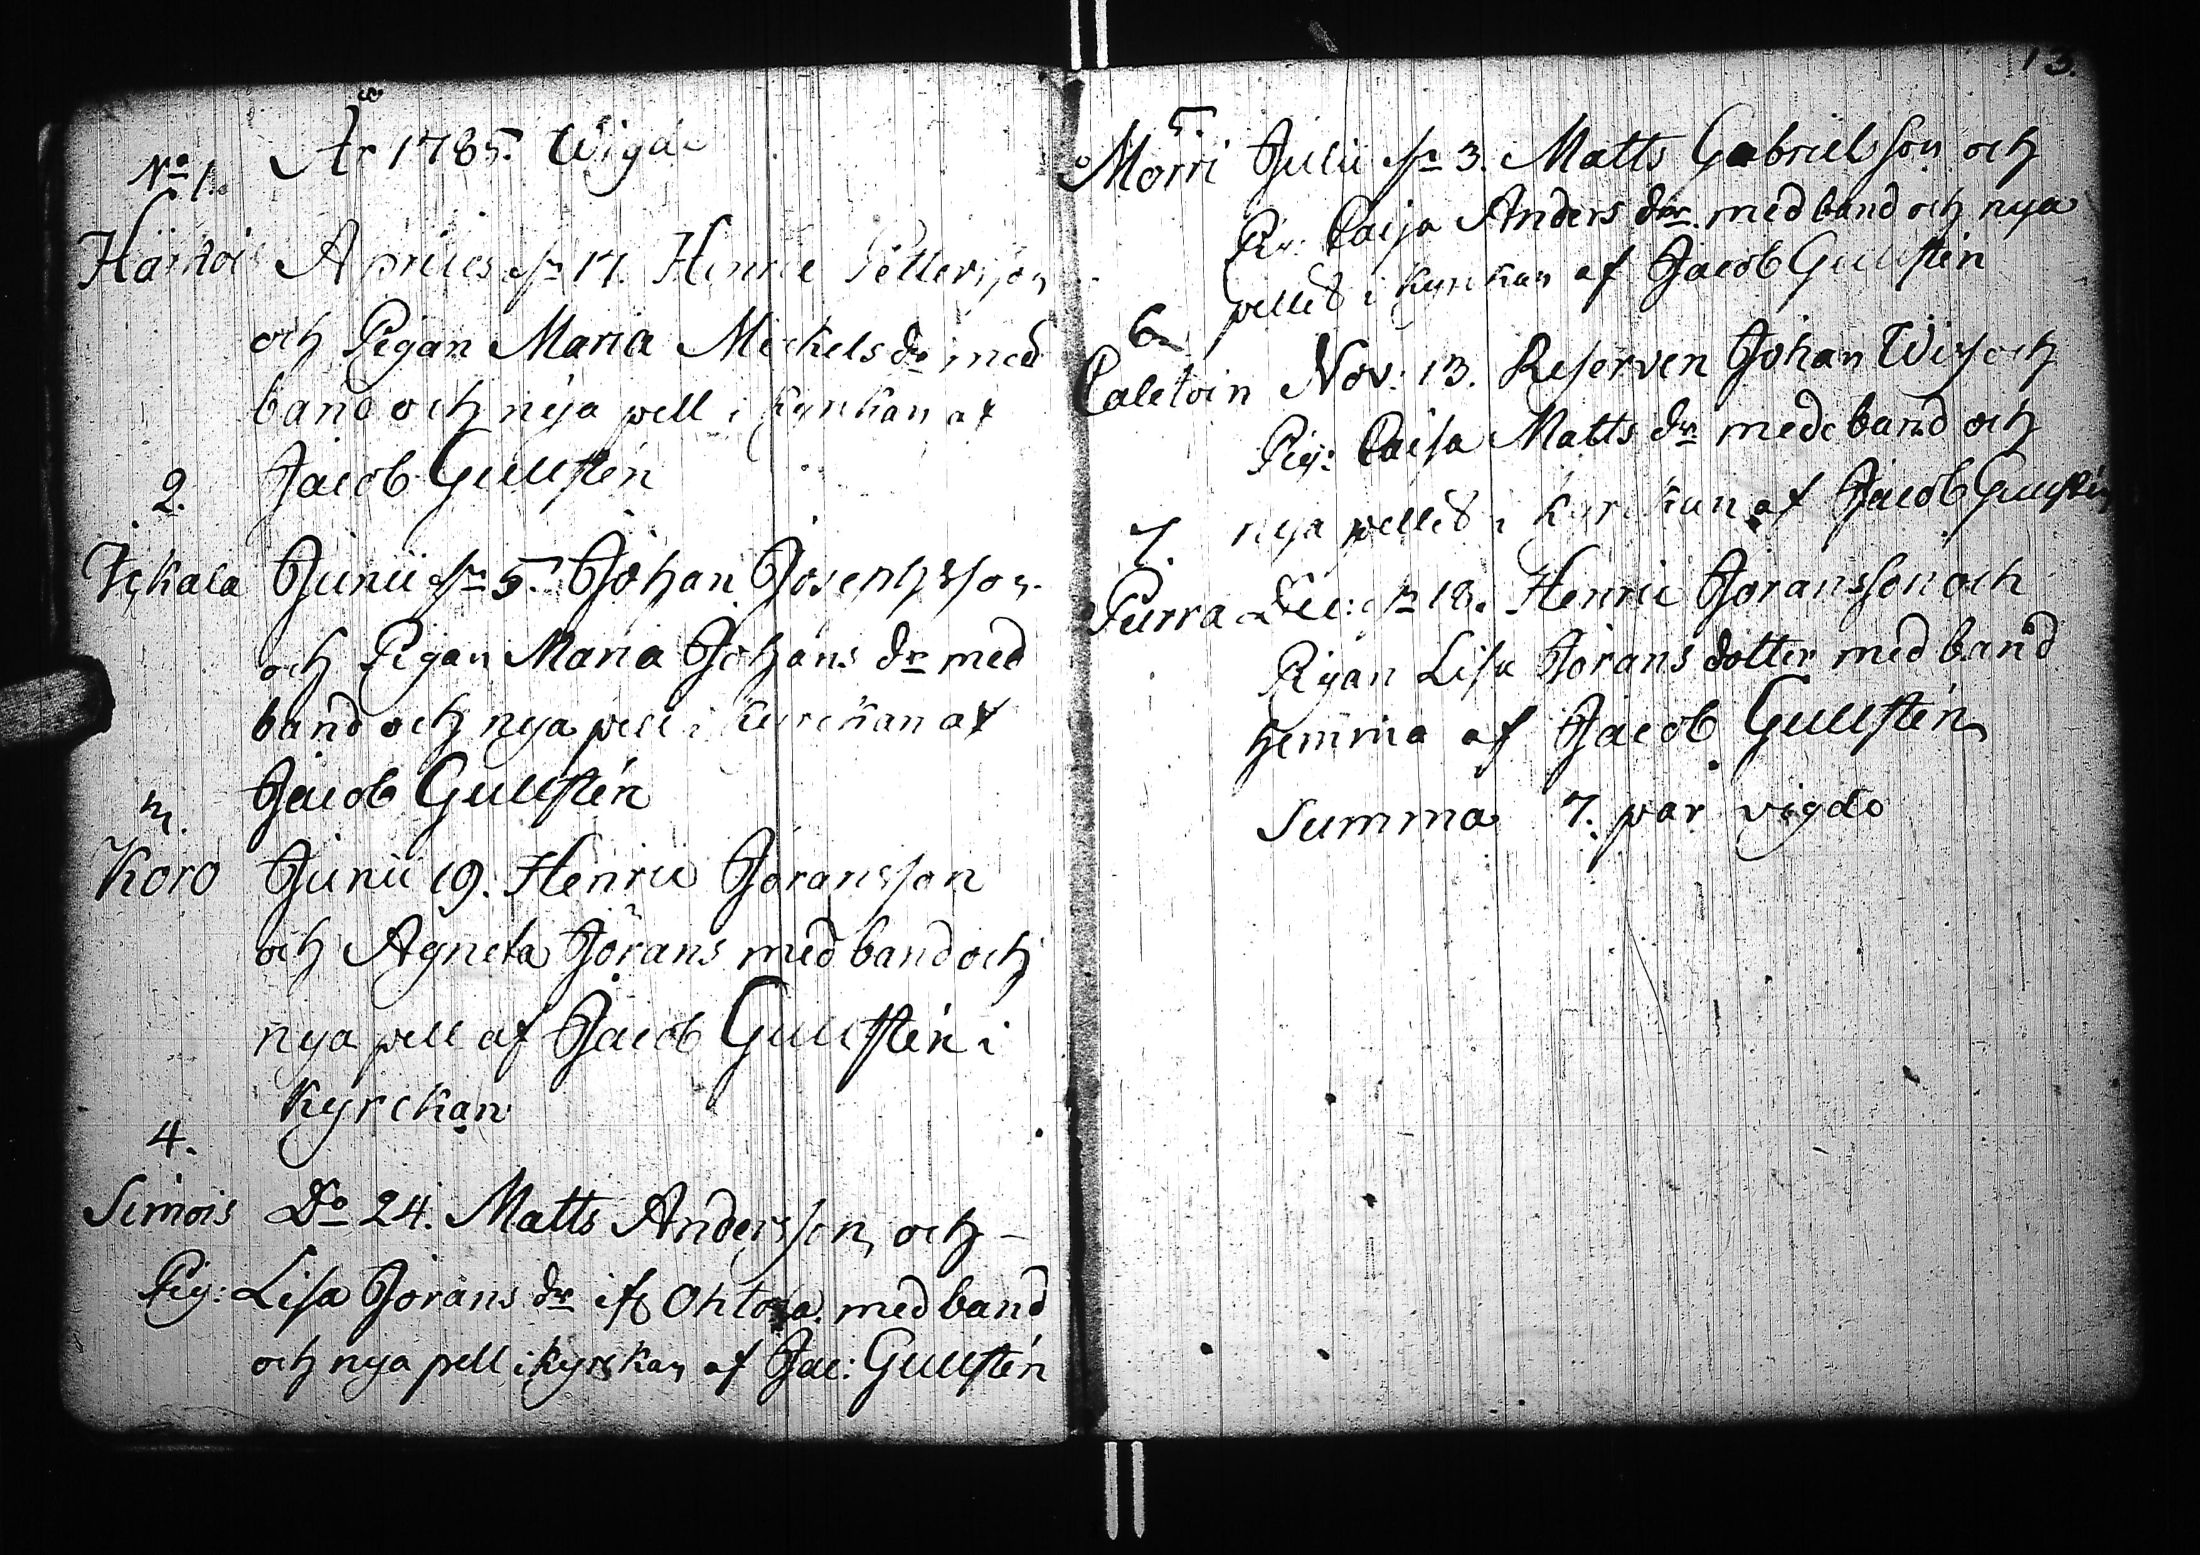 År 1785. Wigde
No 1.
Aprilis 17. Henric Pettersson
och Pigan Maria Mickels dr med
band och nya pell i Kyrckan af
Jacob Gullstén
2.
Junii 5. Johan Josephsson
och Pigan Maria Johans dr med
band och nya pell i Kyrckan af
Jacob Gullstén
3.
Koro Junii 19. Henric Göransson
och Agneta Jörans med band och
nya pell af Jacob Gullstén i
Kyrckan
4.
Simois Do 24. Matts Andersson och
Pig: Lisa Jörans dr med band
och nya pell i kyrckan af Jac: Gullstén
13.
5.
Morri Julii 3. Matts Gabrielsson och
Caisa Anders dr med band och nya
pellet i Kyrckan af Jacob Gullstén
6
Caletoin Nov: 13. Reserven Johan och
Pig: Caisa Matts dr med band och
nya pellet i Kyrckan af Jacob Gullstén
7.
Purra Dec: 18. Henric Jöransson och
Pigan Lisa Jörans dotter med band
hemma af Jacob Gullstén
Summa 7. par vigde